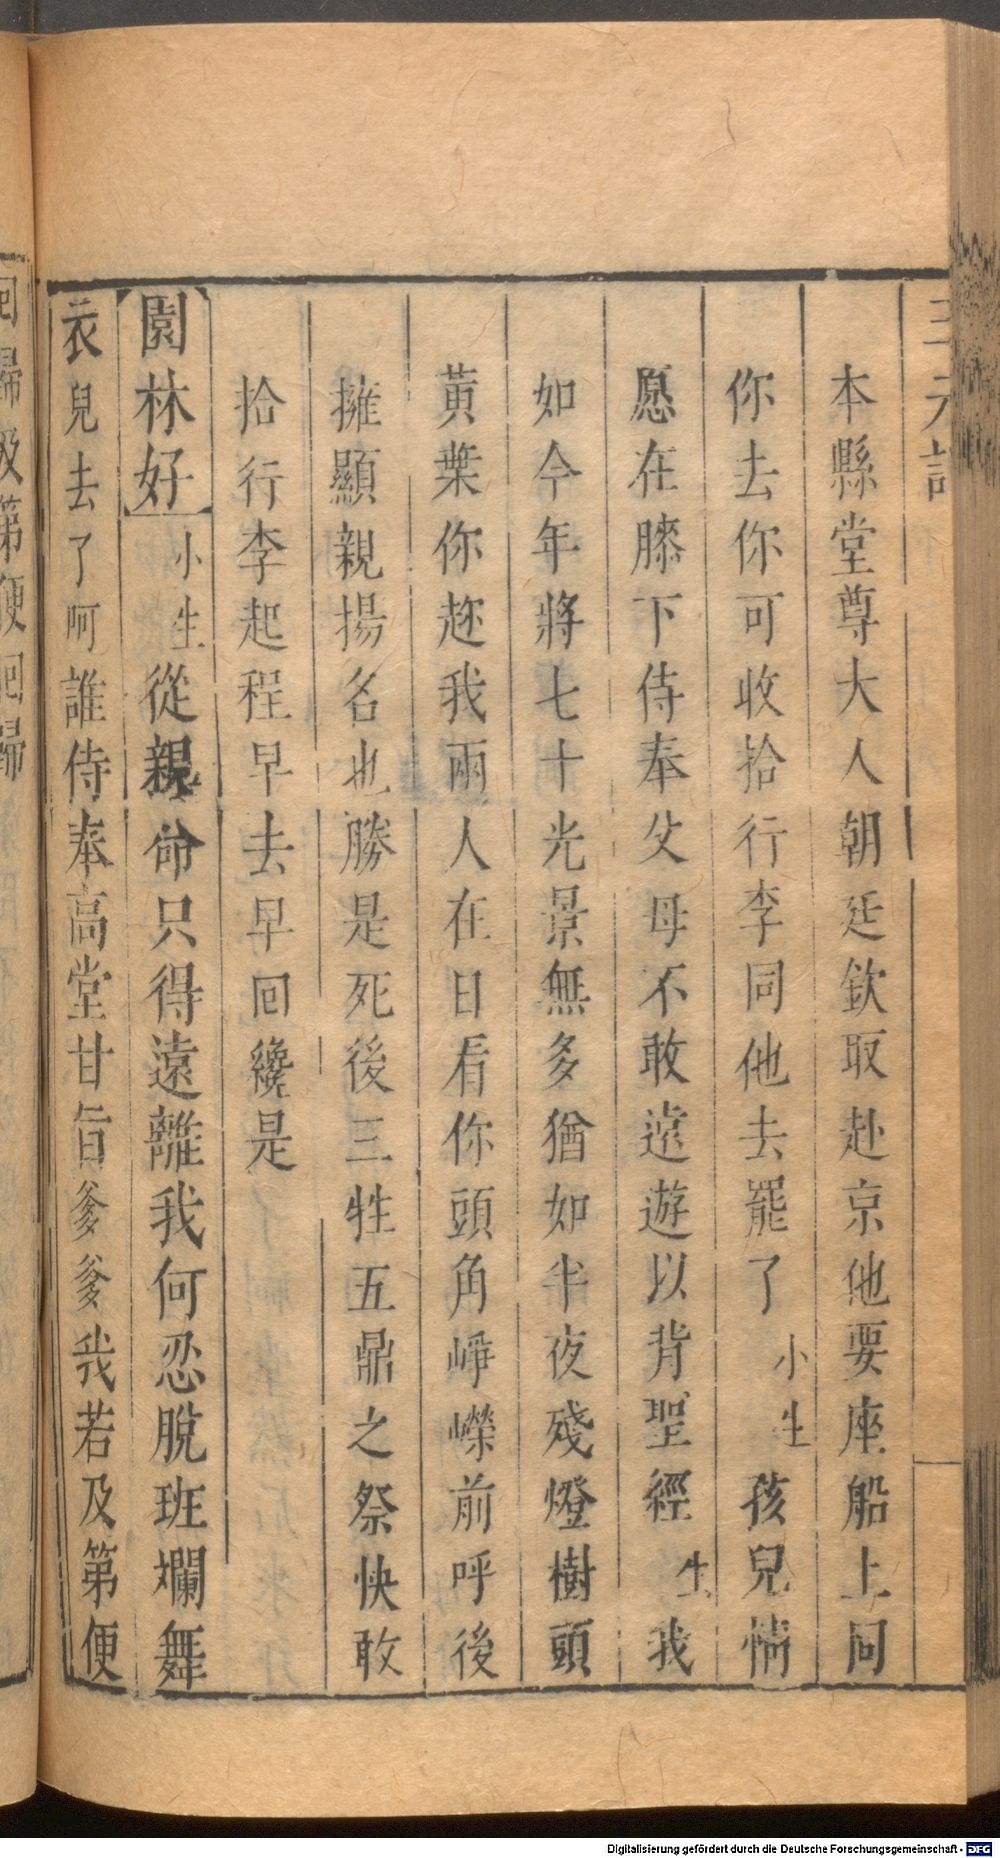 三元記
本縣堂尊大人朝廷欽取赴京他要座船上同
你去你可收拾行李同他去罷了小生孩兒情
愿在膝下侍奉父母不敢遠遊以背聖經生我
如今年將七十光景無多猶如半夜殘燈樹頭
黃葉你趂我兩人在日看你頭角崢嶸前呼後
擁顯親揚名也勝是死後三牲五鼎之祭快敢
拾行李起程早去早回纔是
園林好小生從親命只得遠離我何忍脫班斕舞
衣兒去了呵誰侍奉高堂甘旨爹爹我若及第便
回歸及第便回歸
Digitalisierung gefördert durch die Deutsche Forschungsgemeinschaft - DFG